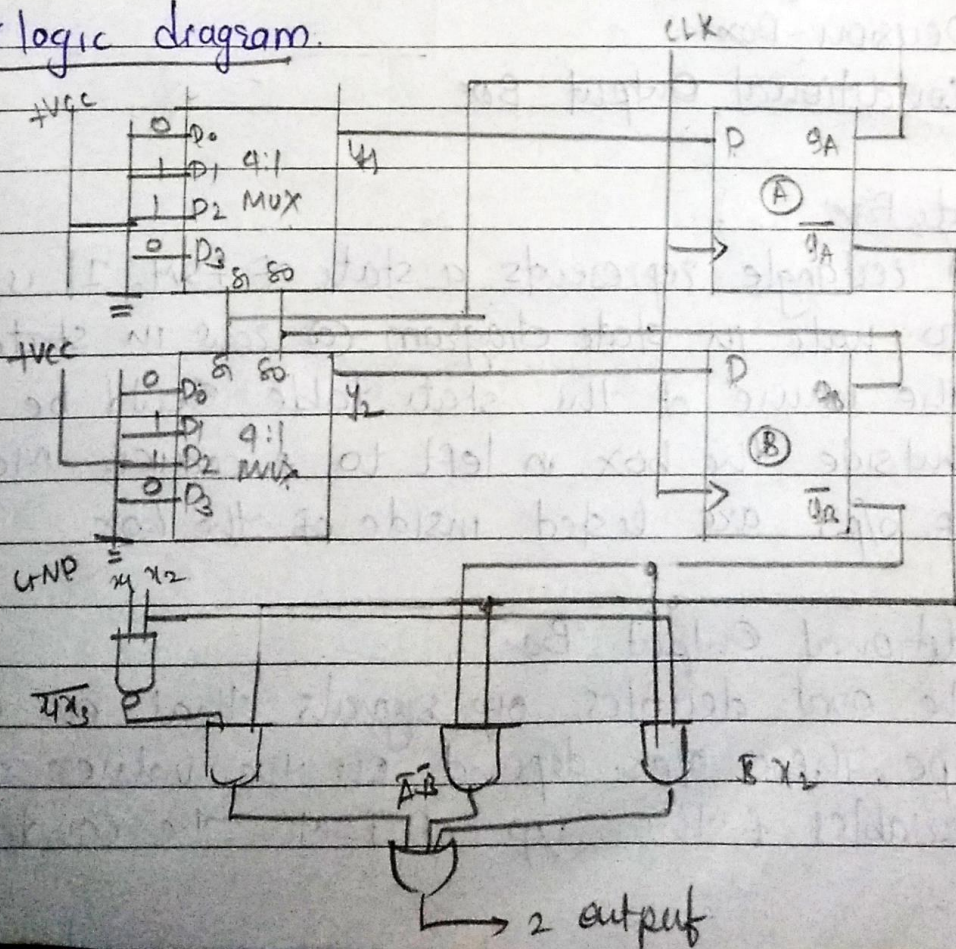 logic diagram.
CLK
+VCC
0 D0
1 D1 4:1
1 D2 MUX
0 D3
S1 S0
Y1
D qA
A
qA
+VCC
S1 S0
0 D0
1 D1 4:1
1 D2 MUX
0 D3
Y2
D qB
B
qB
GND x1 x2
A B
B x2
z output